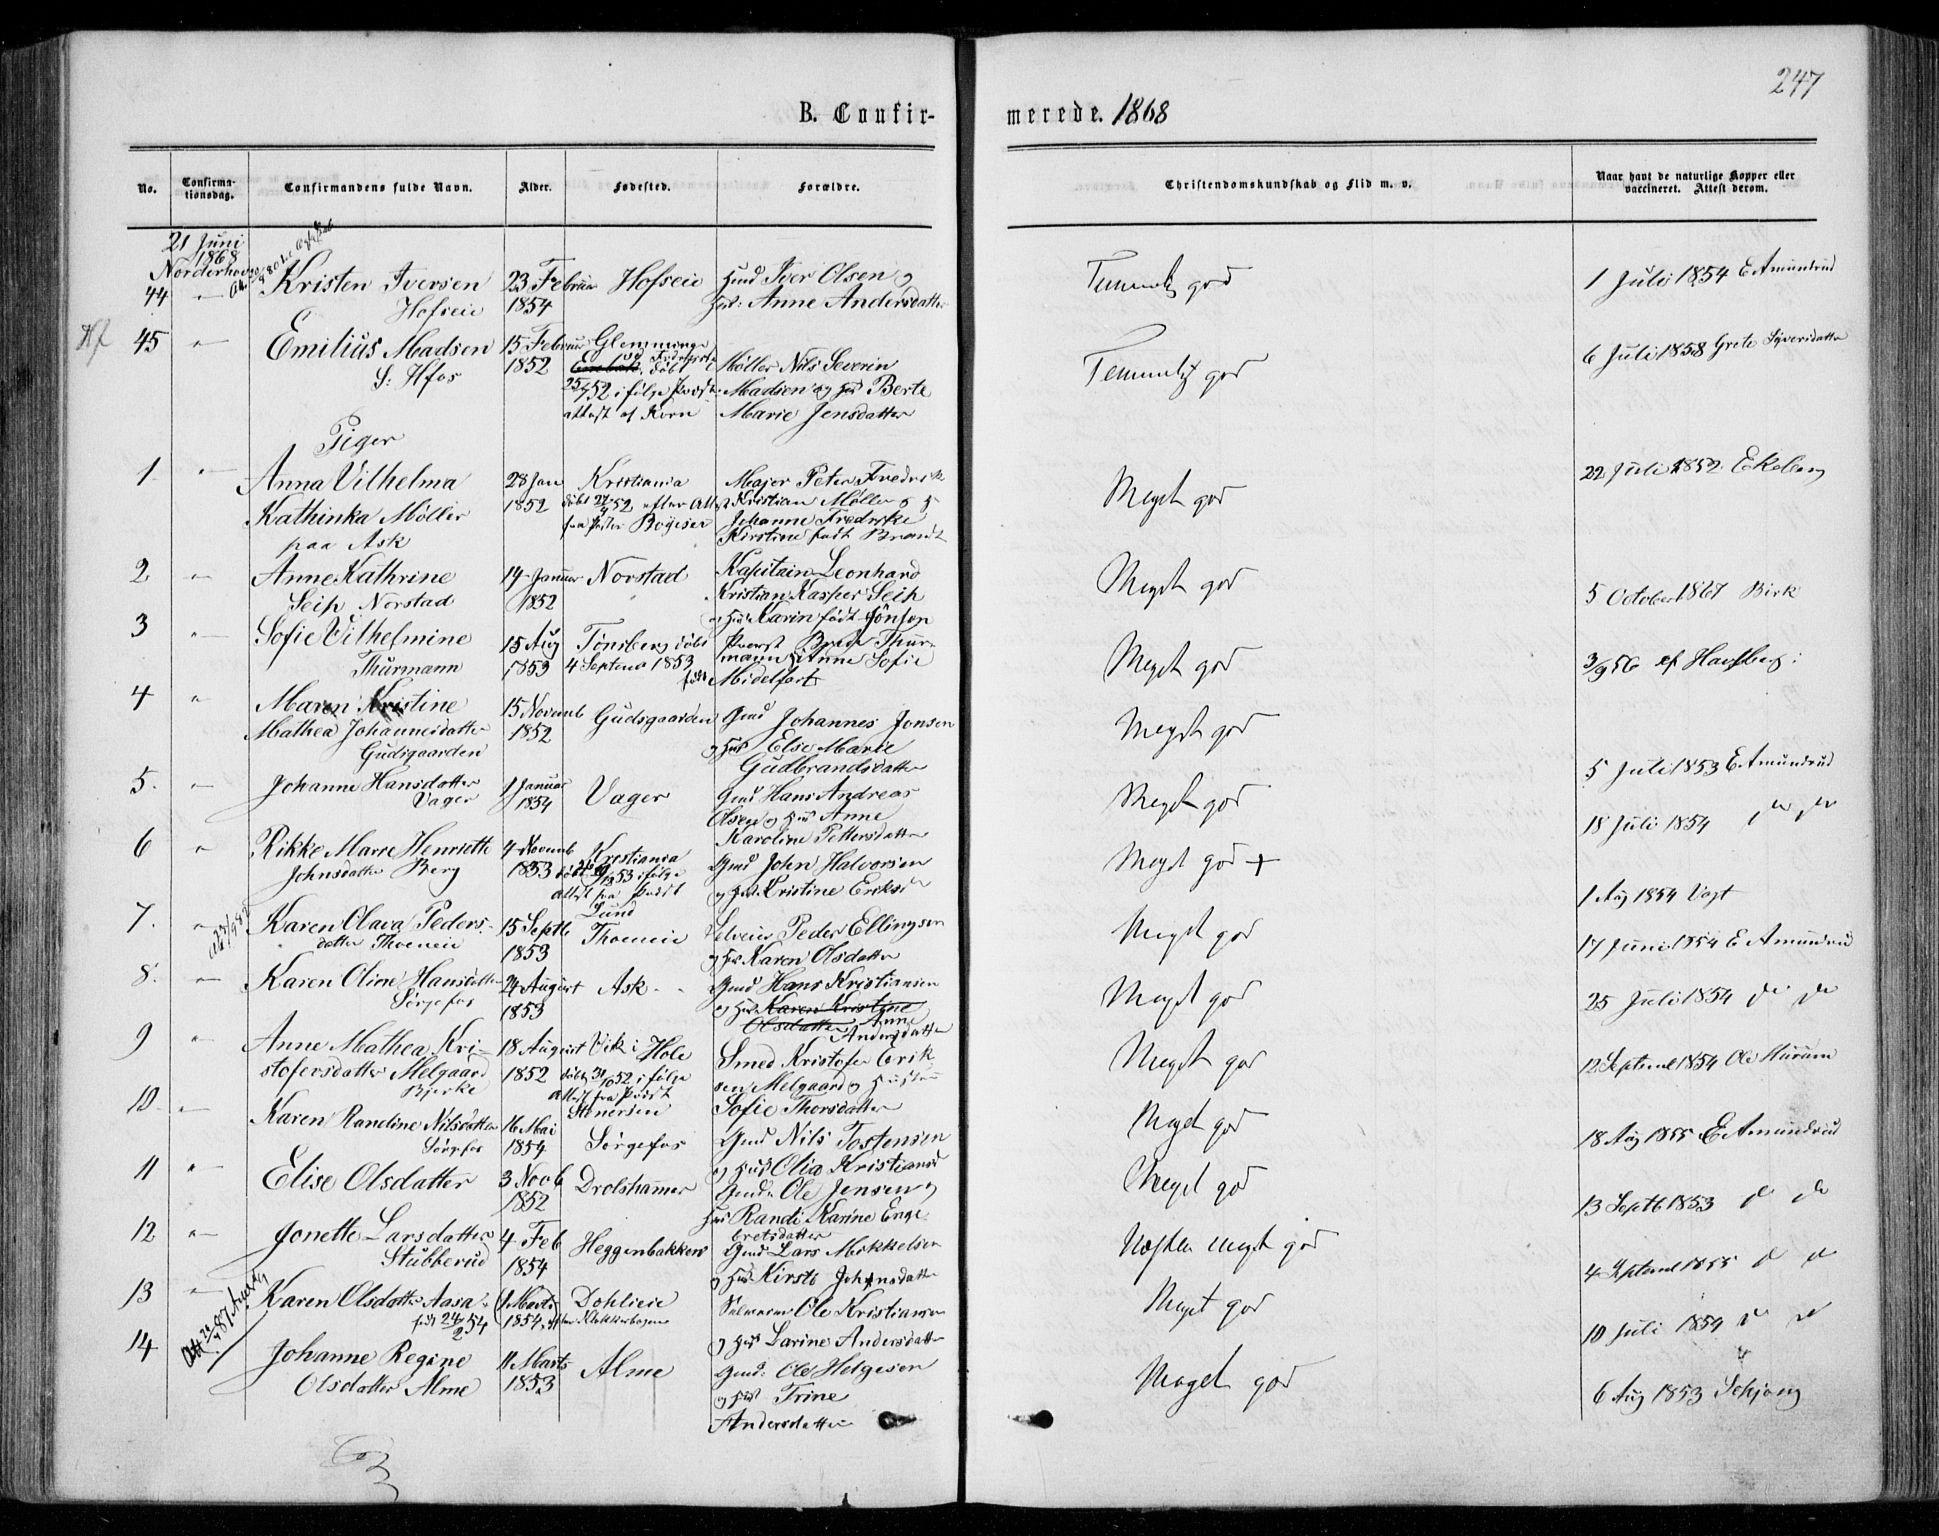 247
B. Confirmerede. 1868
No. Confirmationsdag. Confirmandens fulde Navn. Alder. Fødested. Forældre. Christendomskundskab og Flid m. v. Naar havt de naturlige Kopper eller vaccineret. Attest derom.
21 Juni
1868
Norderhov
44 " Kristen Iversen 23 Februar Hofseie Gmd Iver Olsen og Temmelig god 1 Juli 1854 E Amundrud
Hofseie 1854 Hus: Anne Andersdatter
45 " Emilius Madsen 15 Februar Glemminge Temmeligt god 6 Juli 1858 Grete Syversdatter
S: Hfos 1852 døbt Møller Nils Severin
52 i følge Præste Madsen og Hus Berte
attest af Korn Marie Jensdatter
Piger
1. " Anna Vilhelma 28 Jan Kristiania Major Peter Fredrik Meget god 22 Juli 1852 Ekeberg
Kathinka Møller 1852 døbt 52 efter Att Kristian Møller og H
paa Ask fra Pastor Boyesen Johanne Fredrike
Kirstine født Brandt
2 " Anne Kathrine 14 Januar Norstad Kapitain Leonhard Meget god 5 October 1867 Birk
Seip Norstad 1852 Kristian Kasper Seip
og Hus Karin født Jönson
3 " Sofie Vilhelmine 15 Aug Tönsberg døbt Provst Brede Thur Meget god 3/9 56 af Hauberg:
Thurmann 1853 4 Septemb 1853 mann & Anne Sofie
født Midelfart
4 " Maren Kristine 15 Novemb Gudsgaarden Gmd Johannes Jonsen Meget god 5 Juli 1853 E Amundrud
Mathea Johannesdatter 1852 og Hus Else Marie
Gudsgaarden Gudbrandsdatter
5. " Johanne Hansdatter 1 Januar Vager Gmd Hans Andreas Meget god 18 Juli 1854 do do
Vager 1854 Olsen og Hus Anne
Karoline Pettersdatter
6 " Rikke Marie Henriette 4 Novemb Kristiania Gmd John Halvorsen Meget god + 1 Aug 1854 Vogt
Johnsdatter Berg 1853 døbt 53 i følge og Hus Kristine Eriksd
Attest fra Præst
Lund
7. " Karen Olava Peders- 15 Septb Thoeneie Selveier Peder Ellingsen Meget god 17 Juni 1854 E Amundrud
datter Thoeneie 1853 og Hus Karen Olsdatter
8. " Karen Oline Hansdatter 24 August Ask Gmd Hans Kristiansen Meget god 25 Juli 1854 do do
Sørgefos 1853 og Hus Karen Kristine
Olsdatter Anne
Andersdatter
9 " Anne Mathea Kri- 18 August Vik i Hole Smed Kristofer Erik Meget god 12 Septemb 1854 Ole Murum
stofersdatter Melgaard 1852 døbt 31/10 52 i følge sen Melgaard og Hustru
Bjerke Attest fra Præst Sofie Thorsdatter
Stenersen
10. " Karen Randine Nilsdatter 16 Mai Sørgefos Gmd Nils Tostensen Meget god 18 Aug 1855 E Amundrud
Sørgefos 1854 og Hus Olia Kristiansd
11 " Elise Olsdatter 3 Novb Drolshammer Gmd. Ole Jensen og Meget god 13 Septb 1853 do do
1852 Hus Randi Karine Enge-
bretsdatter
12 " Jonette Larsdatter 4 Feb Heggenbakken Gmd Lars Mikkelsen Næsten meget god 4 Septemb 1855 do do
Stubberud 1854 og Hus Kirsti Johnsdatter
13 " Karen Olsdatter Aasa 1 Marts Dohlieie Selveier Ole Kristiansen Meget god 10 Juli 1854 do do
født 24/2 54 1854 efter Klokkerbogen og Hus Larine Andersdatter
14 Johanne Regine 11 Marts Alme Gmd. Ole Helgesen Meget god 6 Aug 1853 Schjong
Olsdatter Alme 1853 og Hus Trine
Andersdatter